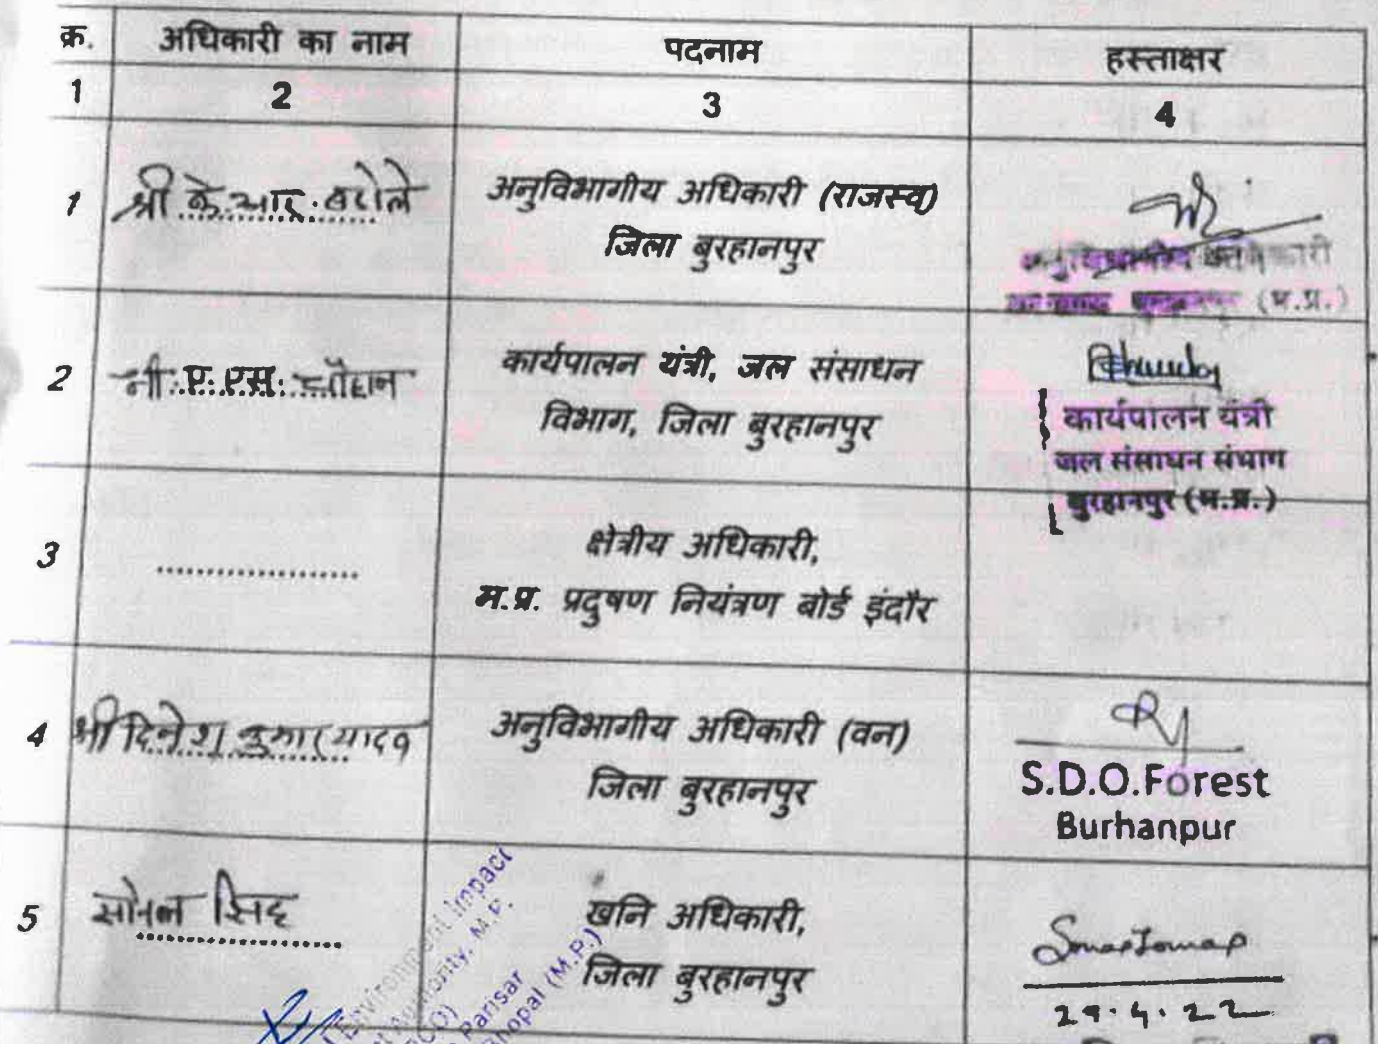 क्र. अधिकारी का नाम पदनाम हस्ताक्षर
1 2 3 4
1 श्री के. आर. बरोले अनुविभागीय अधिकारी (राजस्व)
जिला बुरहानपुर
अनुविभागीय अधिकारी
(म.प्र.)
2 श्री ए. एस. चौहान कार्यपालन यंत्री, जल संसाधन
विभाग, जिला बुरहानपुर
कार्यपालन यंत्री
जल संसाधन संभाग
बुरहानपुर (म.प्र.)
3 .................... क्षेत्रीय अधिकारी,
म.प्र. प्रदुषण नियंत्रण बोर्ड इंदौर
4 श्री दिनेश कुमार यादव अनुविभागीय अधिकारी (वन)
जिला बुरहानपुर
S.D.O.Forest
Burhanpur
5 सोनल सिंह खनि अधिकारी,
जिला बुरहानपुर
29.4.22
Environment Impact
Authority, M.P.
Parisar
Bhopal (M.P.)